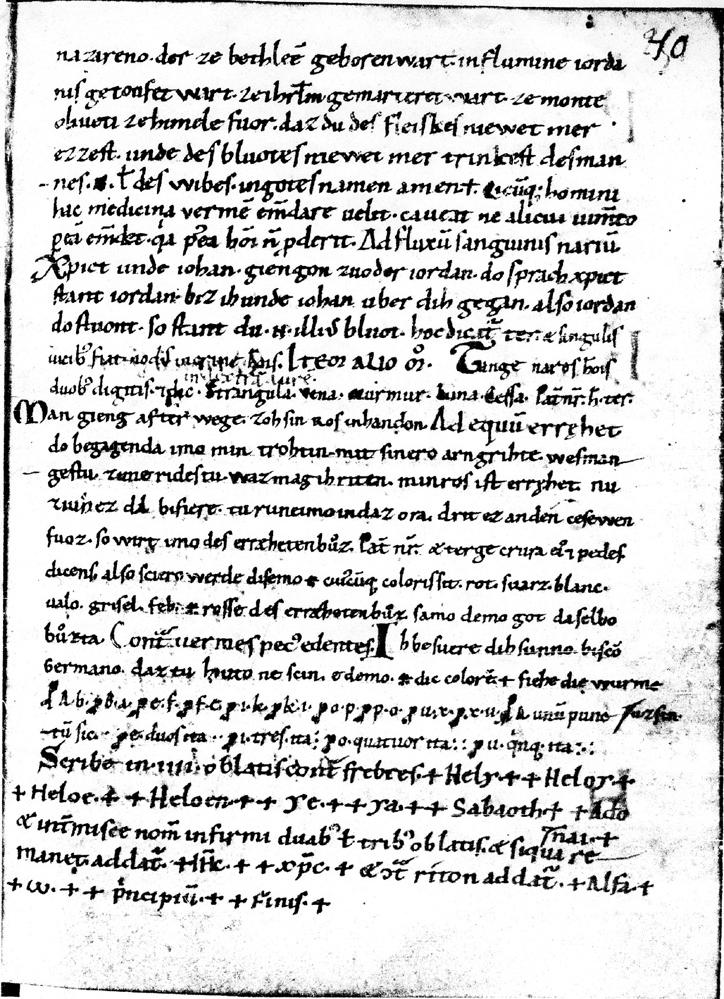 40
nazareno. der ze bethleē geboren wart. in flumine iorda
nis getoufet wart. ze ihrlm gemarteret wart. ze monte
oliueti ze himele fuor. daz du des fleiskes niewet mer
ezzest. unde des bluotes niewet mer trinkest des man
nes. N. ł des wibes. in gotes namen amen. ł cuicūq; homini
hac medicina vermē em̄dare uelit. caueat ne alicui ium̄to
Ad fluxū sanguinis nariū
Xpict unde iohan. giengon zuoder iordan. do sprach xpict
stant iordan. biz ih unde iohan uber dih gegan. also iordan
do stuont. so stant du. N. illiꝰ bluot. hoc dicat̄ ter. & singulis
Item alio m̄. Tange nares hoīs
duobꝰ digitis. Strangula. vena. murmur. Luna. cessa. Pat̄ nr̄. ter.
Man gieng after wege. zoh sin ros in handon. Ad equū erręhet
do begagenda imo min trohtin. mit sinero arngrihte. wes man
gestu. zune ridestu. waz mag ih riten. min ros ist erręhet. nu
ziuhez da bi fiere. tu rune imo in daz ora. drit ez an den cesewen
fuoz. so wirt imo des erræheten bůz. Pat̄ nr̄. & terge crura eiꝰ & pedes
dicens. also sciero werde disemo & cuiuscūq; coloris sit. rot. suarz. blanc.
ualo. grisel. feh. rosse des erræheten bůz. samo demo got da selbo
bůzta Cont̄ uermes pec edentes. Ih besuere dih sunno. bi scō
Germano. daz tu hiuto ne scin. e demo. N. dic colorē. + siehe die wurme
tū sic. pe. duos ita. pi. tres. ita: po. quatuor ita:: pu. q̄nq; ita:·:
Scribe in iiii. oblatis cont̄ frebres. + Hely + + Heloy +
+ Heloe. + + Heloen. + + ye. + + ya. + + Sabaoth + + Ado
nai. +
& int̄misce nom̄ infirmi duabꝰ ł tribꝰ oblatis. & siqua re
manet. addat̄. + + xpc. + addat̄. + Alfa +
+ ω. + + p̄ncipiū. + + Finis. +